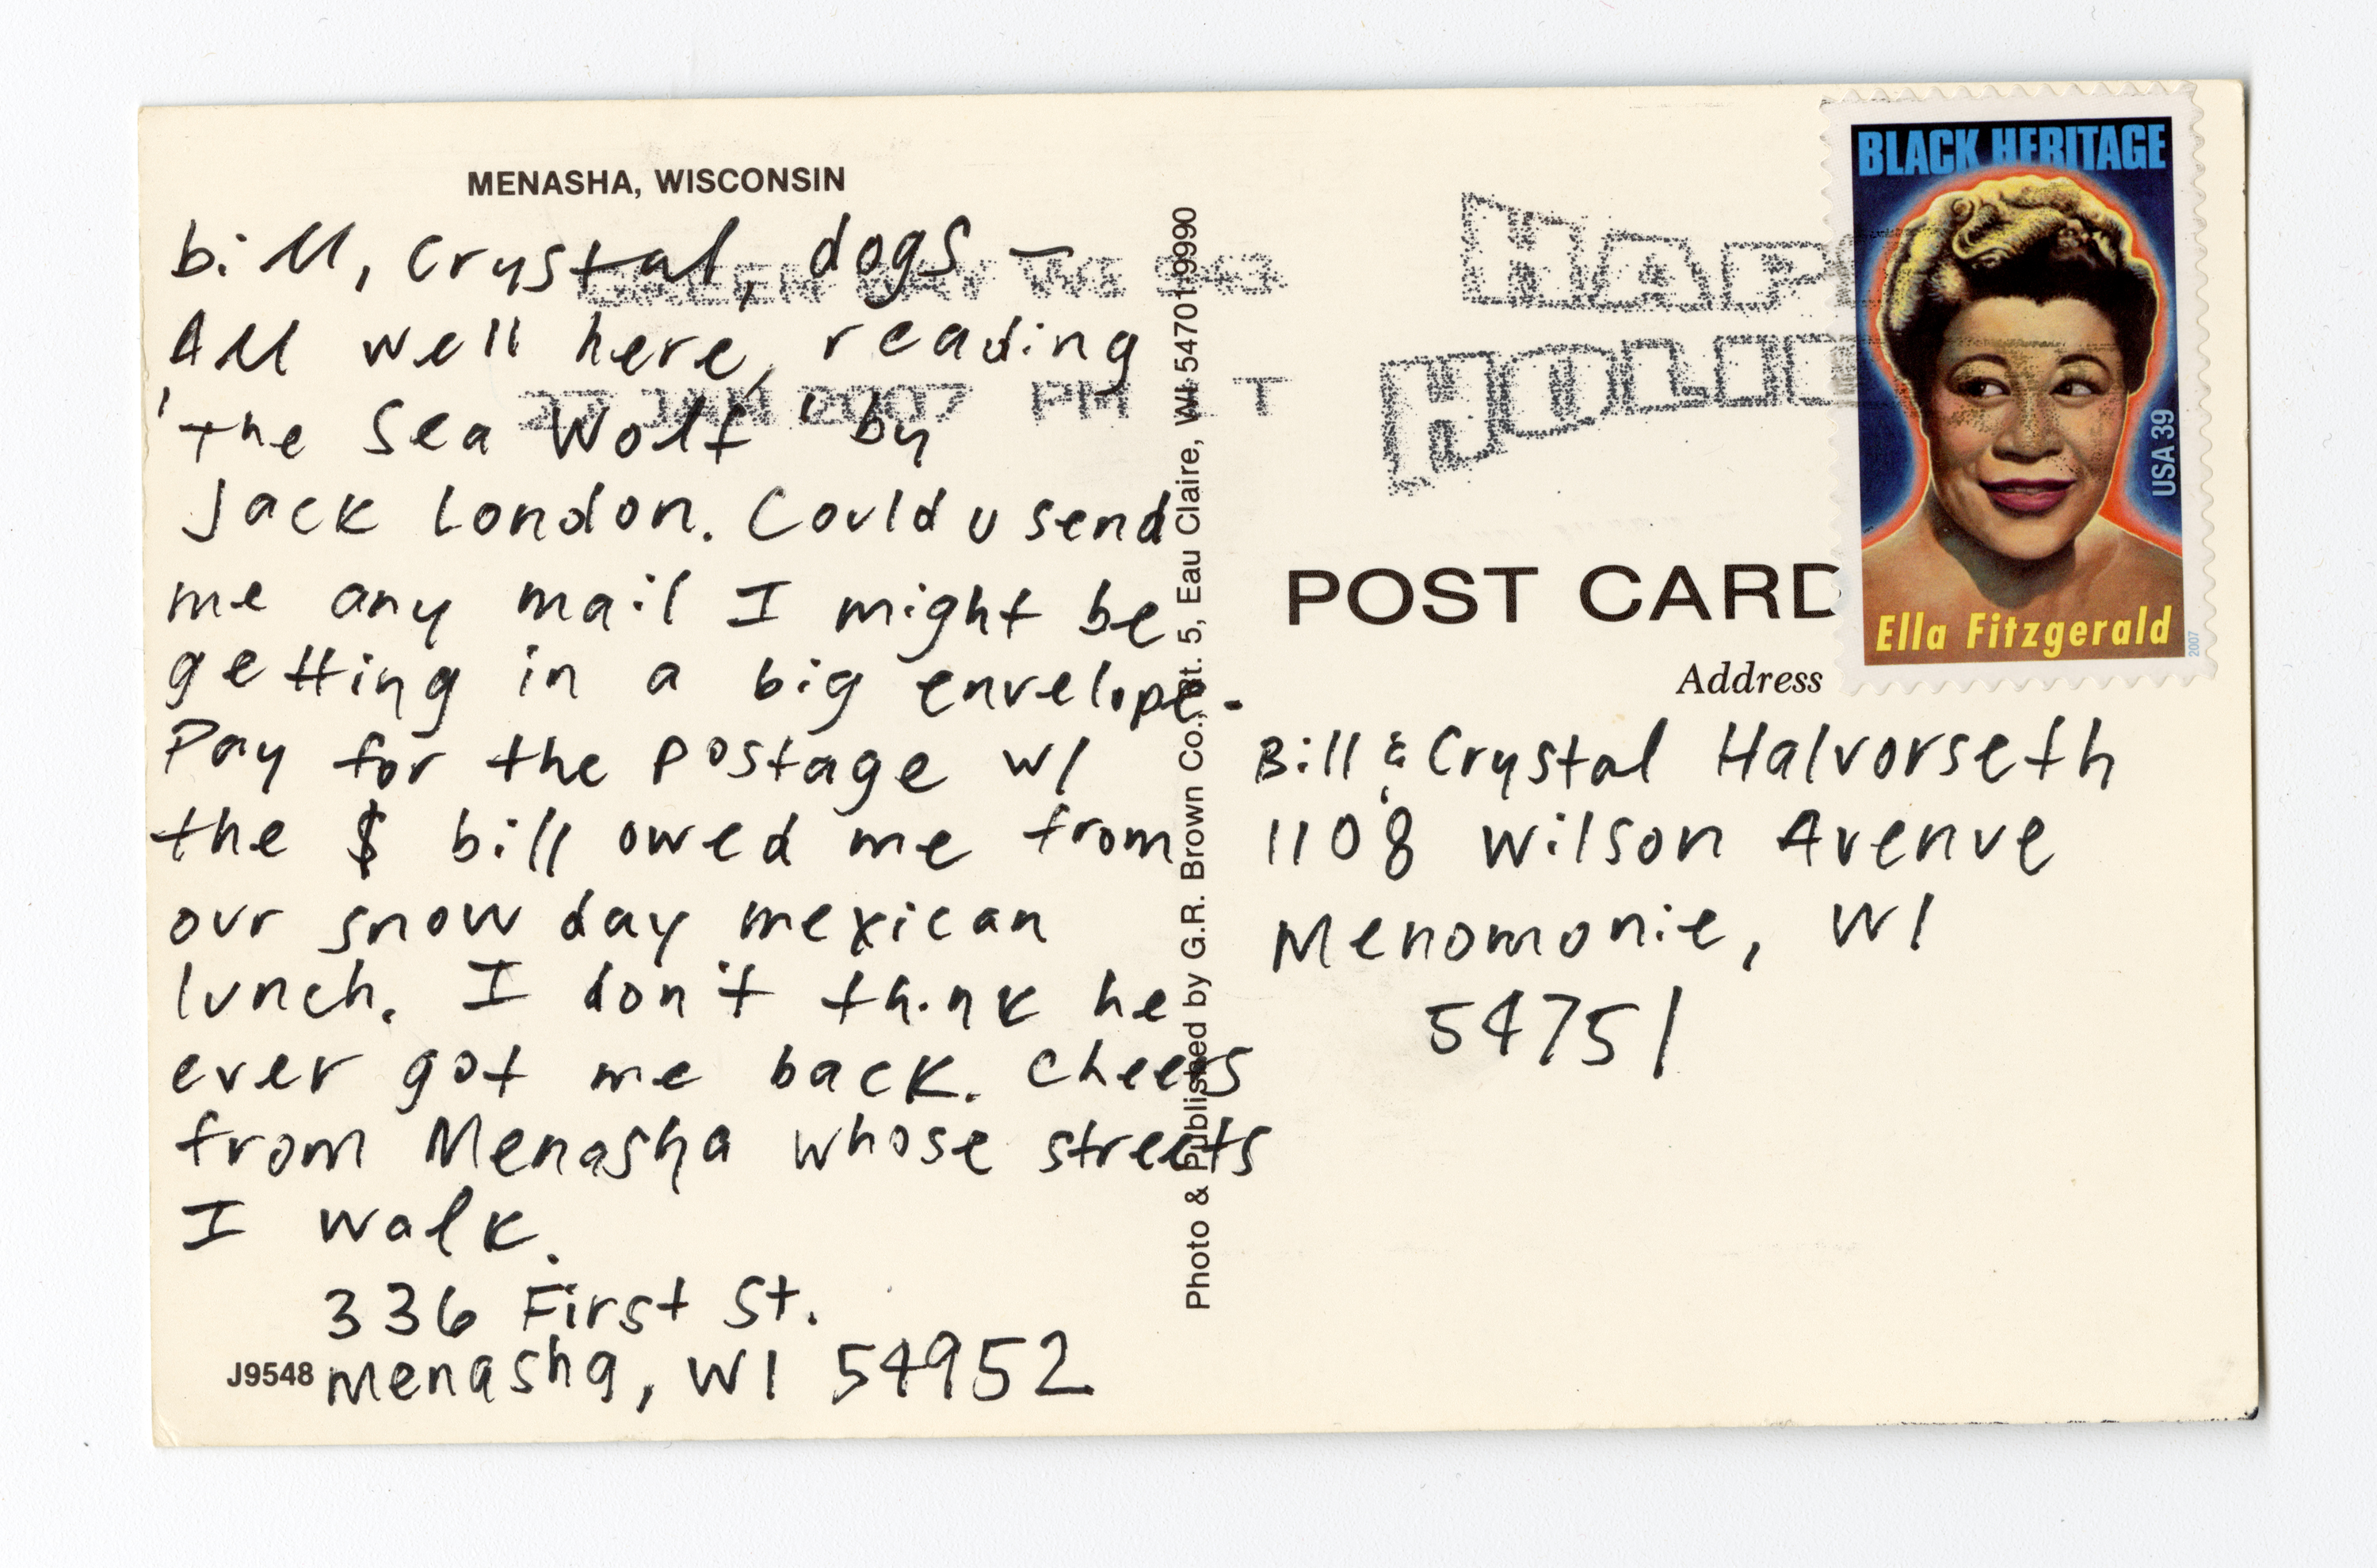 MENASHA, WISCONSIN
bill, Crystal, dogs —
All well here, reading
'the Sea Wolf' by
Jack London. Could u send
me any mail I might be
getting in a big envelope.
Pay for the postage w/
the $ bill owed me from
our snow day mexican
lunch. I don't think he
ever got me back. Cheers
from Menasha whose streets
I walk.
336 First St.
Menasha, WI 54952
J9548
Photo & Published by G.R. Brown Co., Rt. 5, Eau Claire, WI 54701-9990
GREEN BAY WI 543
27 JAN 2007 PM T
HAPP
HOLID
BLACK HERITAGE
USA 39
Ella Fitzgerald
2007
POST CARD
Address
Bill & Crystal Halvorseth
1108 Wilson Avenue
Menomonie, WI
54751